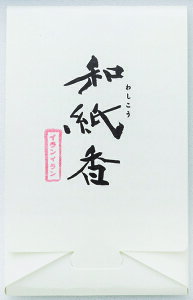 和紙香
わしこう
イランイラン